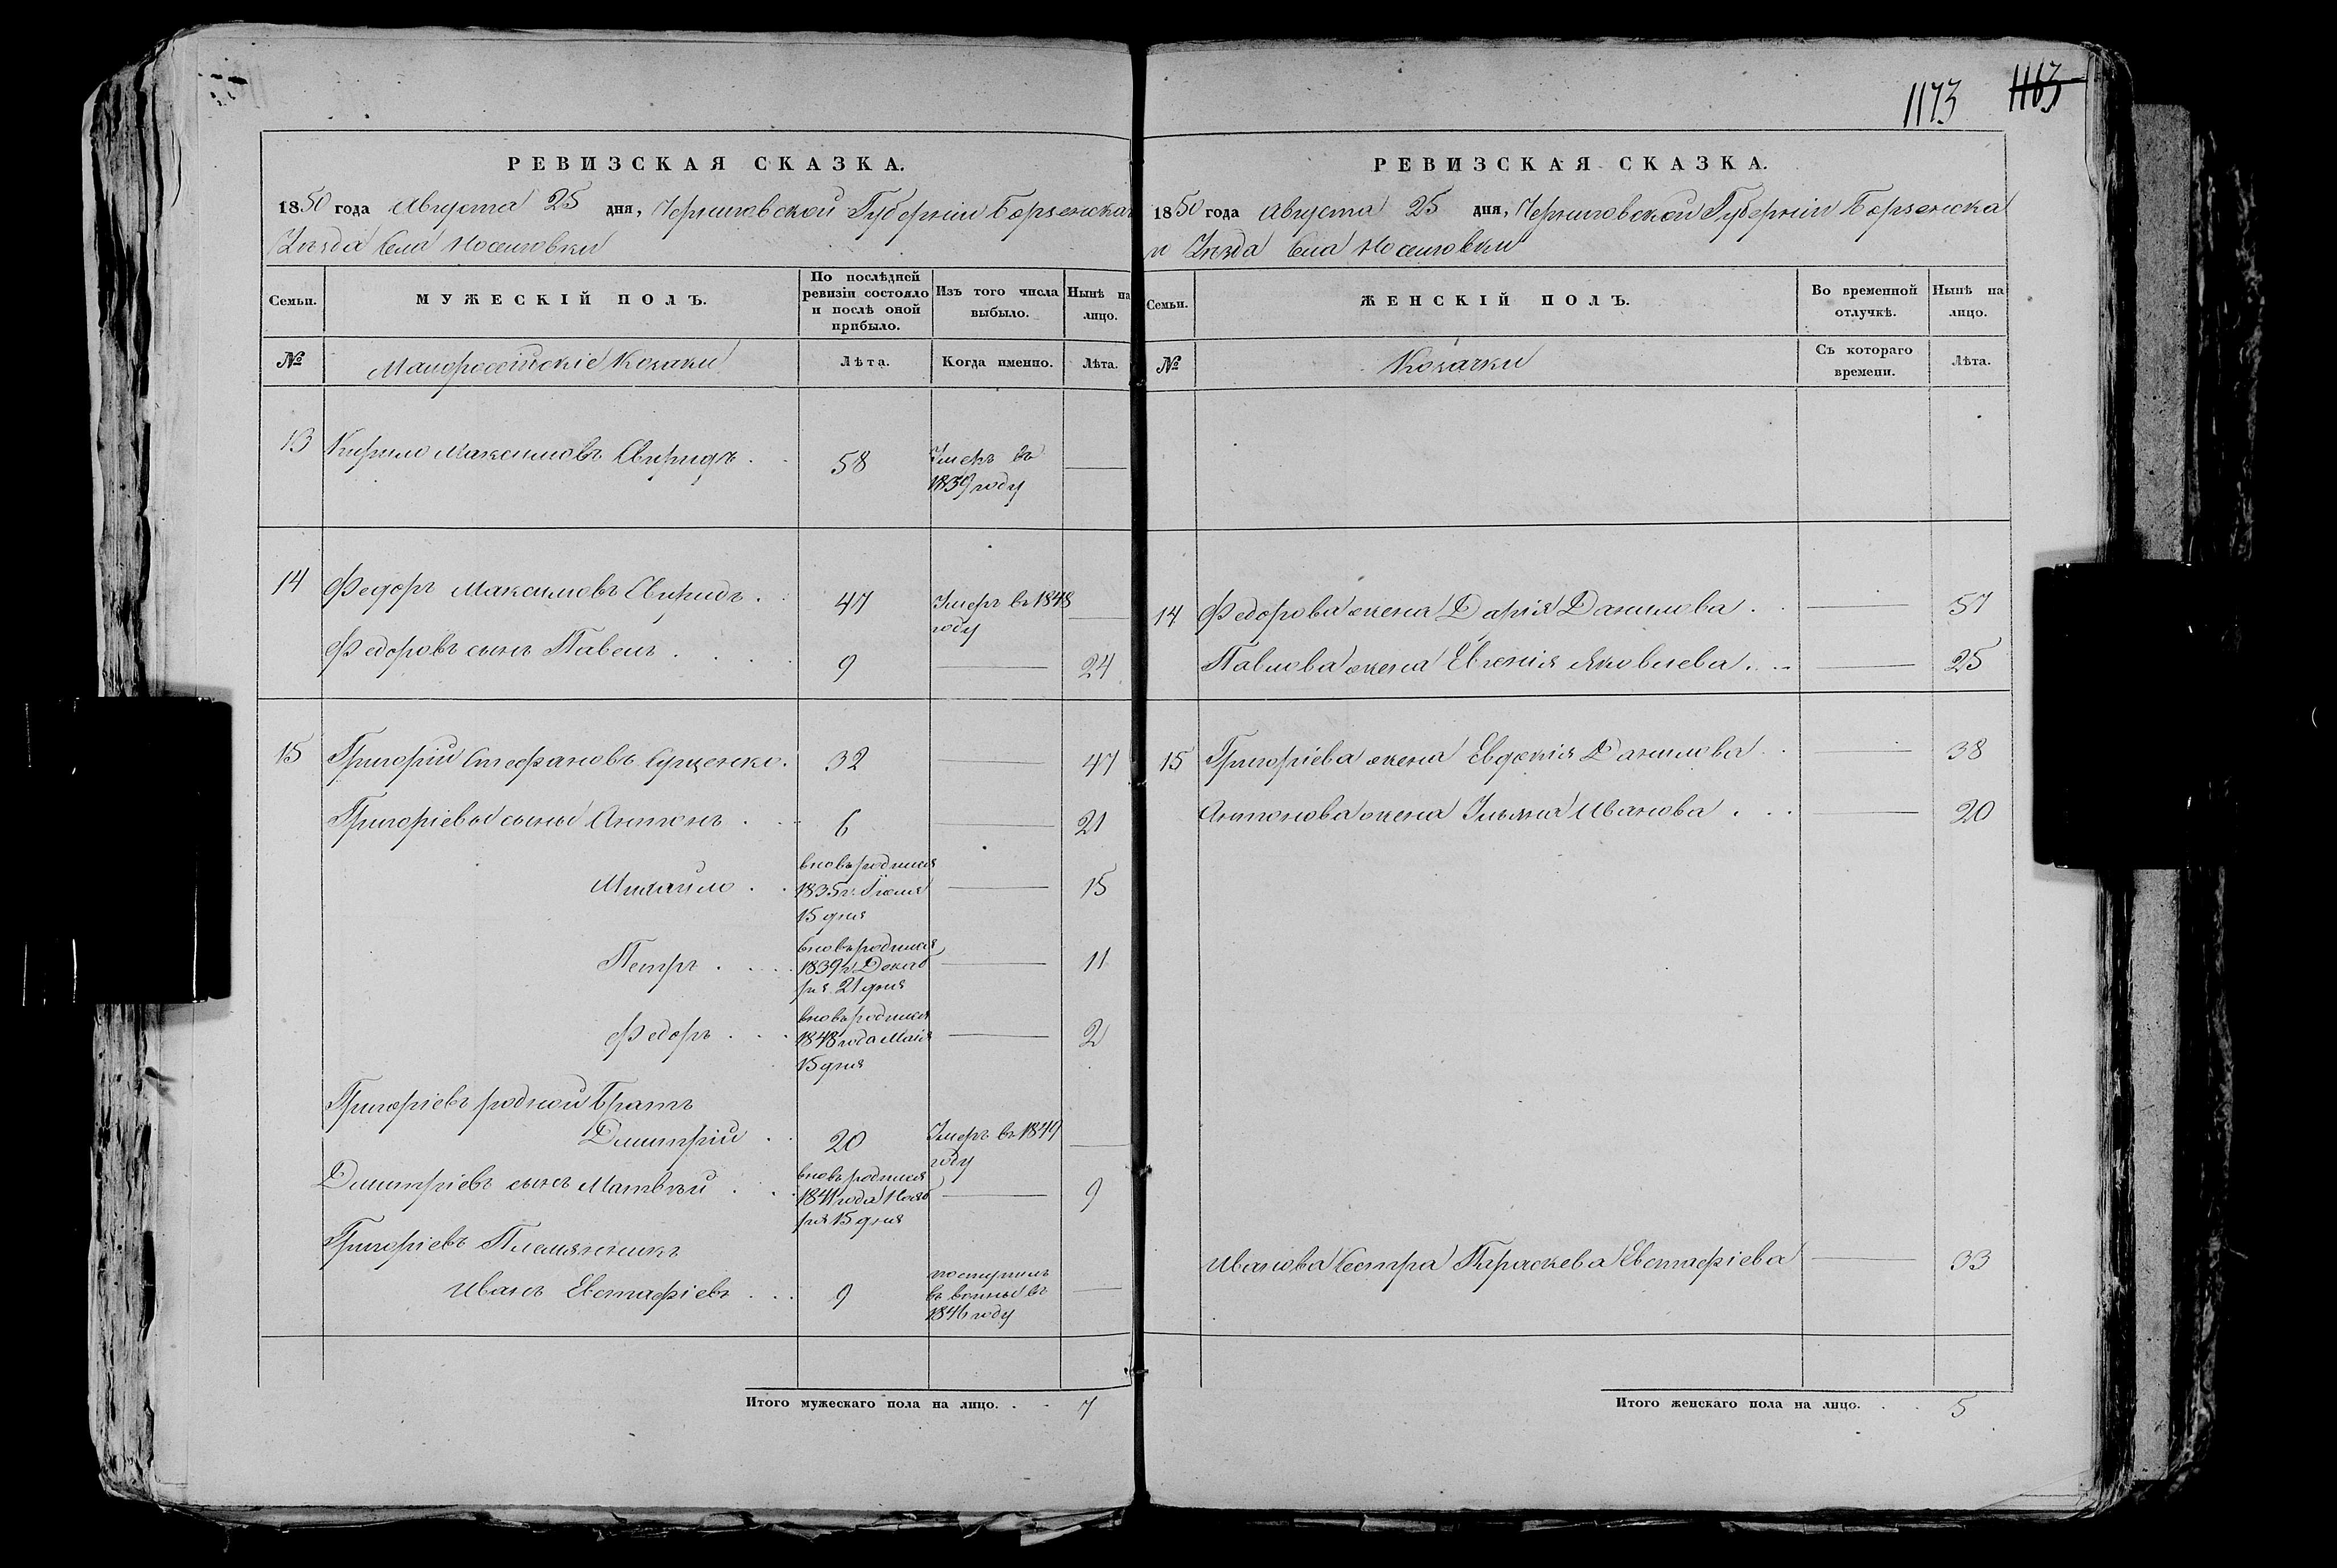 1173 1163
РЕВИЗСКАЯ СКАЗКА.
1850 года Августа 25 дня, Черниговской Губерніи Борзенска
Уѣзда Села Носеловки
Семьи.
МУЖЕСКІЙ ПОЛЪ.
По послѣдней ревизіи состояло и послѣ оной прибыло.
Изъ того числа выбыло.
Нынѣ на лицо.
№ Малоросcійскіе Козаки Лѣта. Когда именно. Лѣта.
13 Кирило Максимовъ Свиридъ 58 Умеръ въ
1839 году
14 Федоръ Максимовъ Свиридъ 47 Умеръ въ 1848
году
Федоровъ сынъ Павелъ 9 24
15 Григорій Стефановъ Сущенко 32 47
Григоріевы сыны Антонъ 6 21
вновь родился
Михайло 1835 г. Іюля 15
15 дня
вновь родился
Петръ 1839 г. Декаб 11
ря 21 дня
вновь родился
Федоръ 1848 года Маія 2
15 дня
Григоріевъ родной Братъ
Димитрій 20 Умеръ въ 1849
году
вновь родился
Димитріевъ сынъ Матвѣй 1841 года Нояб 9
ря 15 дня
Григоріевъ Племянникъ
Иванъ Евстафіевъ 9 поступилъ
въ воины въ
1846 году
Итого мужескаго пола на лицо. 7
РЕВИЗСКАЯ СКАЗКА.
1850 года Августа 25 дня, Черниговской Губерніи Борзенска
го Уѣзда Села Носеловки
Семьи.
ЖЕНСКІЙ ПОЛЪ.
Во временной отлучкѣ.
Нынѣ на лицо.
№ Козачки Съ котораго времени. Лѣта.
14 Федорова жена Дарія Данилова 57
Павлова жена Евгенія Яковлева 25
15 Григоріева жена Евдокія Данилова 38
Антонова жена Ульяна Иванова 20
Иванова Сестра Параскева Евстафіева 33
Итого женскаго пола на лицо. 5